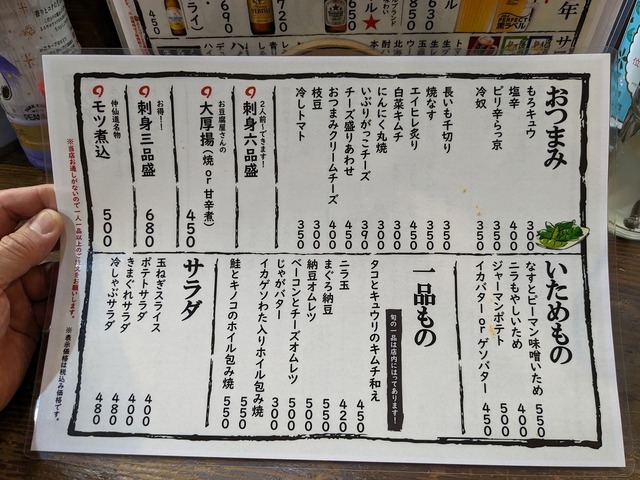 おつまみ
もろキュウ 300
塩辛 400
ピリ辛らっ京 350
冷奴 350
長いも千切り 350
焼なす 350
エイヒレ炙り 450
白菜キムチ 300
にんにく丸焼 300
いぶりがっこチーズ 390
チーズ盛りあわせ 450
おつまみクリームチーズ 400
枝豆 300
冷しトマト 350
2人前〜できます!
刺身六品盛
お豆腐屋さんの
大厚揚(焼 or 甘辛煮) 450
お得!!
刺身三品盛 680
仲仙道名物
モツ煮込 500
いためもの
なすとピーマン味噌いため 550
ニラもやしいため 400
ジャーマンポテト 500
イカバター or ゲソバター 450
一品もの
旬の一品は店内にはってあります!
タコとキュウリのキムチ和え 450
ニラ玉 420
まぐろ納豆 550
納豆オムレツ 500
ベーコンとチーズオムレツ 500
じゃがバター 300
イカゲソわた入りホイル包み焼 550
鮭とキノコのホイル包み焼 550
サラダ
玉ねぎスライス 400
ポテトサラダ 400
きまぐれサラダ 480
冷しゃぶサラダ 480
※当店お通しがないので一人一品以上のご注文をお願いします。
※表示価格は税込み価格です。